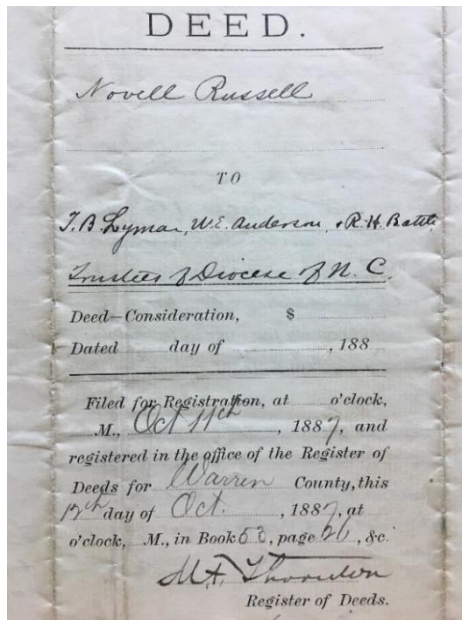 DEED.
Novell Russell
TO
T. B. Lyman, W. E. Anderson, & R. H. Battle
Trustees of Diocese of N. C.
Deed—Consideration, $
Dated day of , 188
Filed for Registration, at o'clock,
M., Oct 11th , 1887, and
registered in the office of the Register of
Deeds for Warren County, this
12th day of Oct. , 1887, at
o'clock, M., in Book 53, page 26, &c.
Thornton
Register of Deeds.